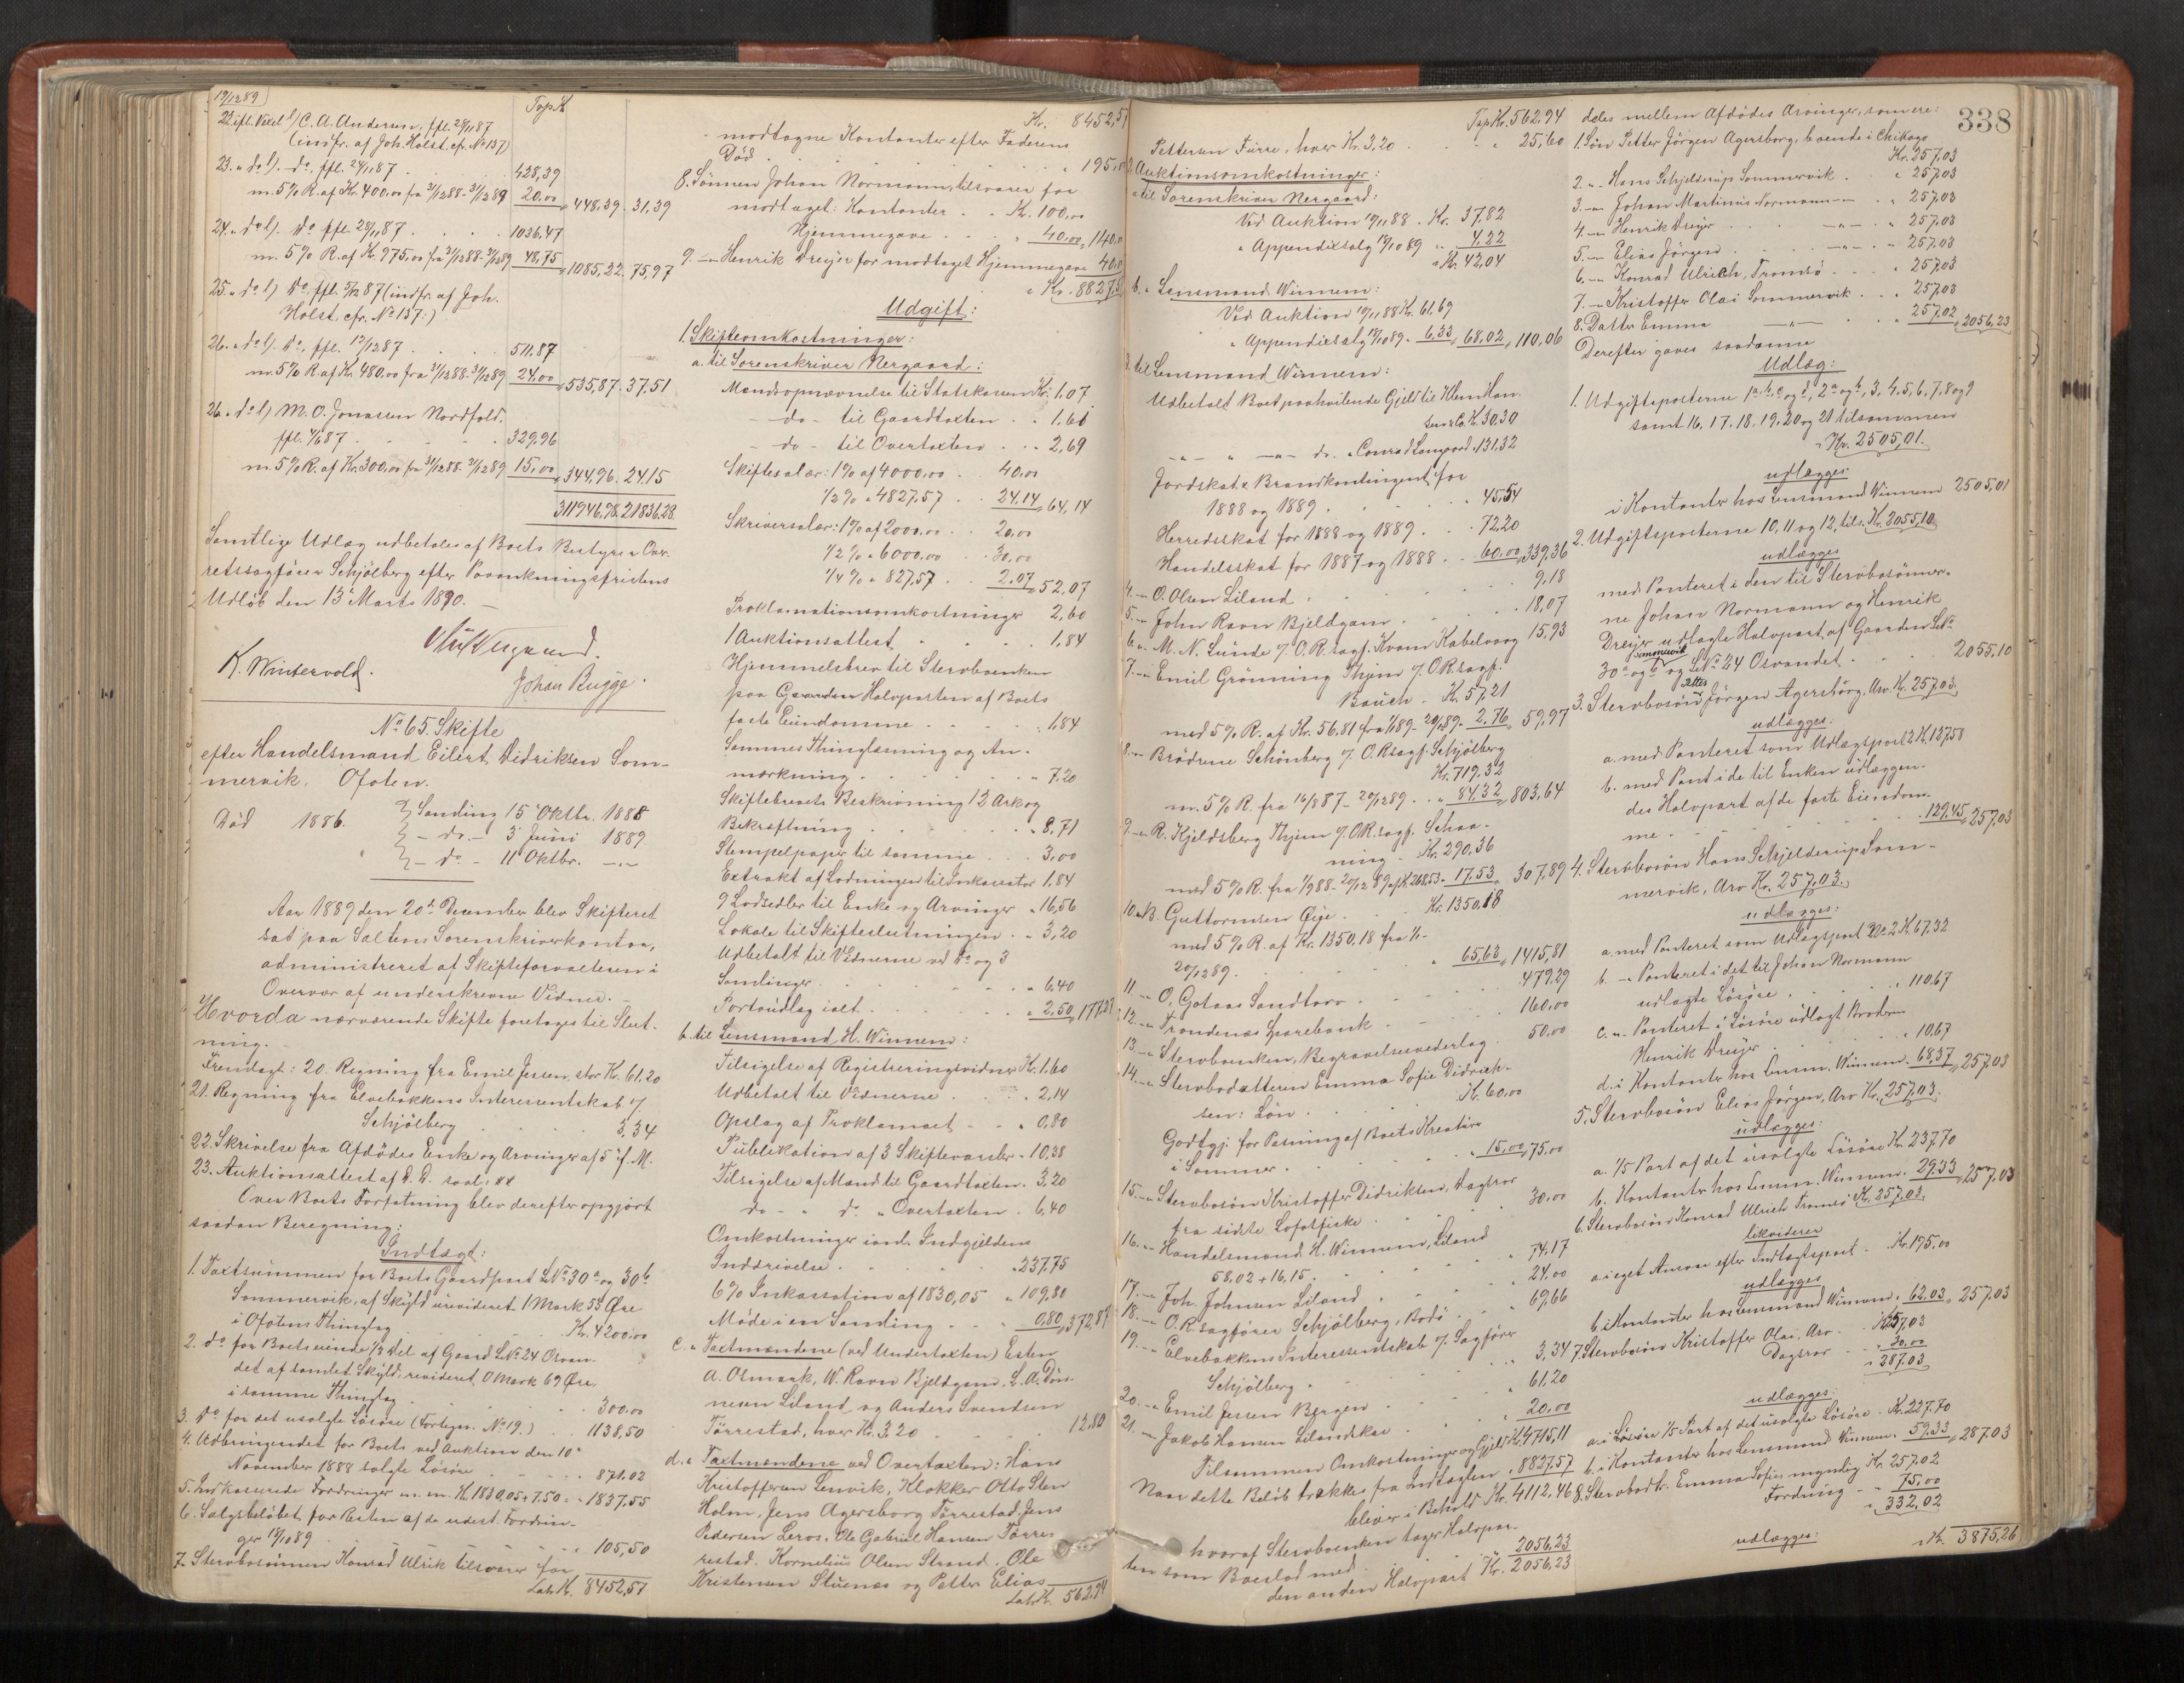 19/12 89
Tvp. K.
22. ifl. Vexel l/ C. A. Andersen, ffl. 28/11 87
(indfr. af Joh. Holst, cfr. No 157)
23. " do l/. do, ffl. 24/11 87 . . 428,39
m. 5% R. af Kr. 400,00 fra 31/12 88 - 31/12 89 20,00 " 448,39 . 31,39
24. " do l/. do ffl. 28/11 87 . . 1036,47
m. 5% R. af Kr. 975,00 fra 31/12 88 - 31/12 89 48,75 " 1085,22 . 75,97
25. " do l/ do, ffl. 5/12 87 (indfr. af Joh.
Holst, cfr. No 157:)
26. " do l/. do, ffl. 12/12 87 . . 511,87
m. 5% R. af Kr. 480,00 fra 31/12 88 - 31/12 89 24,00 " 535,87 . 37,51
26. " do l/ M. O. Jonassen Nordfold.
ffl. 4/6 87 . . 329,96
m. 5% R. af Kr. 300,00 fra 31/12 88 - 31/12 89 15,00 " 344,96 . 24,15
311946,98. 21836,28.
Samtlige Udlæg udbetales af Boets Bestyrer Over-
retssagfører Schjølberg efter Paaankningsfristens
Udløb den 13de Marts 1890. –
K. Wintervold.
Johan Bugge.
No 65. Skifte
efter Handelsmand Eilert Didriksen Som-
mervik, Ofoten.
Død 1886. } Samling 15 Oktbr. 1888
} – do. – 3 Juni 1889
} – do – 11 Oktbr. – " –
Aar 1889 den 20de December blev Skifteret
sat paa Saltens Sorenskriverkontor,
administreret af Skifteforvalteren i
Overvær af underskrevne Vidner. –
Hvorda nærværende Skifte foretages til Slut-
ning. –
Fremlagt: 20. Regning fra Emil Jessen, stor Kr. 61,20
21. Regning fra Elvebakkens Interessentskab v/
Schjølberg . . 3,34
22. Skrivelse fra Afdødes Enke og Arvinger af 5 f. M.
23. Auktionsattest af D. D. saal: xx
Over Boets Forfatning blev derefter opgjort
saadan Beregning:
Indtægt:
1. Taxtsummen for Boets Gaardpart L.No 30a og 30b
Sommervik, af Skyld urevideret 1 Mark 53 Øre
i Ofotens Thinglag . . Kr. 4200,00
2. do for Boets eiende 1/2 Del af Gaard L.No 24 Osvan-
det af samlet Skyld, revideret 0 Mark 69 Øre,
i samme Thinglag . . 300,00
3. do for det usolgte Løsøre (Fortegn. No 19.) . . 1138,50
4. Udbringendet for Boets ved Auktion den 10de
November 1888 solgte Løsøre . . 871,02
5. Inkasserede Fordringer m. m. K. 1830,05 + 7,50 = " 1837,55
6. Salgsbeløbet for Resten af de udest. Fordrin-
ger 19/10 89 . . " 105,50
7. Stervbosønnen Konrad Ulrik tilsvarer for
Lat. K. 8452,57
Kr. 8452,57
modtagne Kontanter efter Faderens
Død . . " 195,00
8. Sønnen Johan Normann, tilsvarer for
modtaget: Kontanter . . Kr. 100,00
Hjemmegave . . " 40,00 " 140,00
9. – " – Henrik Dreyer for modtaget Hjemmegave 40,00
" Kr. 8827,57
Udgift:
1. Skifteomkostninger:
a. til Sorenskriver Nergaard:
Mandsopnævnelse til Statskassen Kr. 1,07
– do – til Gaardtaxten . . 1,61
– do – til Overtaxten . . 2,69
Skiftesalær: 1% af 4000,00 . . 40,00
1/2% " 4827,57 . . 24,14 " 64,14
Skriversalær: 1% af 2000,00 . . 20,00
1/2% " 6000,00 . . 30,00
1/4% " 827,57 . . 2,07 " 52,07
Proklamationsomkostninger 2,60
1 Auktionsattest . . 1,84
Hjemmelsbrev til Stervboenken
paa Gaarden Halvparten af Boets
faste Eiendomme . . 1,84
Sammes Thinglæsning og An-
mærkning . . " 7,20
Skiftebrevets Beskrivning 12 Ark og
Bekræftning . . " 8,71
Stempelpapir til samme . . 3,00
Extrakt af Lodningen til Inkassator 1,84
9 Lodsedler til Enke og Arvinger " 16,56
Lokale til Skifteslutningen . . " 3,20
Udbetalt til Vidnerne ved do og 3
Samlinger . . " 6,40
Portoudlæg ialt . . " 2,50 " 177,27
b. til Lensmand H. Winnem:
Tilsigelse af Registreringsvidner Kr. 1,60
Udbetalt til Vidnerne . . 2,14
Opslag af Proklamaet . . " 0,80
Publikation af 3 Skiftevarsler . 10,38
Tilsigelse af Mænd til Gaardtaxten . 3,20
do – " do " Overtaxten . 6,40
Omkostninger ved Indgjældens
Inddrivelse . . " 237,75
6% Inkassation af 1830,05 . " 109,80
Møde i en Samling . . " 0,80 " 372,87
c. " Taxtmændene (ved Undertaxten) Esten
A. Osmark, W. Ravn Bjeldgam, L. A. Døn-
nesen Liland og Anders Svendsen
Tørrestad, hver Kr. 3,20 . . 12,80
d. " Taxtmændene ved Overtaxten: Hans
Kristoffersen Lenvik, Klokker Otto Sten
Holm, Jens Agersborg Tørrestad, Jens
Pedersen Leros, Ole Gabriel Hansen Tørre-
restad, Kornelius Olsen Strand, Ole
Kristensen Stuenæs og Petter Elias
Lat. Kr. 562,94
Tvp. Kr. 562,94
Pettersen Furre, hver Kr. 3,20 . . " 25,60
2. Auktionsomkostninger:
a. til Sorenskriver Nergaard:
Ved Auktion 10/11 88 . Kr. 37,82
" Appendixsalg 19/10 89 . " 4,22
" Kr. 42,04
b. " Lensmand Winnem:
Ved Auktion 10/11 88 Kr. 61,69
" Appendixsalg 19/10 89 . 6,33 " 68,02 " 110,06
3. til Lensmand Winnem:
Udbetalt Boet paahvilende Gjeld til Klem Han-
sen & Co. K. 30,30
– " – " – " – do. " Conrad Langaard . 131,32
Jordskat & Brandkontingent for
1888 og 1889 . . " 45,54
Herredsskat for 1888 og 1889 . . 72,20
Handelsskat for 1887 og 1888 . . 60,00 " 339,36
4. – " O. Olsen Liland . . 9,18
5. – " John Ravn Bjeldgam . . 18,07
6. " M. N. Lunde v/ O. R. sagf. Kvam Kabelvaag 15,93
7. – " Emil Grønning Thjem v/ O. R. sagf.
Bauch . Kr. 57,21
med 5% R. af Kr. 56,81 fra 1/1 89 - 20/12 89 . 2,76 " 59,97
8. – " Brødrene Schønberg v/ O. R. sagf. Schjølberg
Kr. 719,32
m. 5% R. fra 16/8 87 - 20/12 89 . . " 84,32 " 803,64
9. – " R. Kjeldsberg Thjem v/ O. R. sagf. Schaa-
ning . Kr. 290,36
med 5% R. fra 1/9 88 - 20/12 89 af K. 268,53 " 17,53 " 307,89
10. " B. Guttormsen Øye . Kr. 1350,18
med 5% R. af Kr. 1350,18 fra 1/1 -
20/12 89 . . " 65,63 " 1415,81
11. – " O. Gotaas Sandtorv . . 479,29
12. – " Trondenæs Sparebank . . 160,00
13. – " Stervboenken, Begravelsesvederlag . 50,00
14. – " Stervbodatteren Emma Sofie Didrik-
sen: Løn . . K. 60,00
Godtgj. for Pasning af Boets Kreature
i Sommer . . " 15,00 " 75,00
15. – " Stervbosøn Kristoffer Didriksen, Dagsror
fra sidste Lofotfiske . . 30,00
16. – " Handelsmand H. Winnem, Liland
58,02 + 16,15 . . " 74,17
17. – " Joh. Johnsen Liland . . " 24,00
18. – " O. R. sagfører Schjølberg, Bodø . . " 69,66
19. – " Elvebakkens Interessentskab v/ Sagfører
Schjølberg . . " 3,34
20. – " Emil Jessen Bergen . . " 61,20
21. – " Jakob Hansen Lilandskar . . " 20,00
Tilsammen Omkostninger og Gjeld K. 4715,11
Naar dette Beløb trækkes fra Indtægten " 8827,57
bliver i Behold Kr. 4112,46
hvoraf Stervboenken tager Halvpar-
ten som Boeslod med . . 2056,23
den anden Halvpart Kr. 2056,23
338
deles mellem Afdødes Arvinger, som ere:
1. Søn Petter Jørgen Agersborg, boende i Chikago
Kr. 257,03
2. – " – Hans Schjelderup Sommervik . . " 257,03
3. – " – Johan Martinius Normann – " – . . " 257,03
4. – " – Henrik Dreyer . . – " – . . " 257,03
5. – " – Elias Jørgen . . – " – . . " 257,03
6. – " – Konrad Ulrich, Tromsø . . " 257,03
7. – " – Kristoffer Olai Sommervik . . " 257,03
8. Datter Emma – " – . . 257,02 " 2056,23
Derefter gaves saadanne
Udlæg:
1. Udgiftsposterne 1 a, b, c og d, 2 a og b, 3, 4, 5, 6, 7, 8 og 9
samt 16, 17, 18, 19, 20 og 21 tilsammen
Kr. 2505,01.
udlægges:
i Kontanter hos Lensmand Winnem 2505,01
2. Udgiftsposterne 10, 11 og 12, tils. Kr. 2055,10
udlægges
med Panteret i den til Stervbosønner-
ne Johan Normann og Henrik
Dreyer udlagte Halvpart af Gaarden L.No
30a og b Sommervik og L.No 24 Osvandet . . 2055,10
3. Stervbosøn Petter Jørgen Agersborg, Arv Kr. 257,03.
udlægges:
a. med Panteret som Udlægspost 2 K. 127,58
b. med Pant i de til Enken udlæggen-
des Halvpart af de faste Eiendom-
me . . " 129,45 " 257,03
4. Stervbosøn Hans Schjelderup Som-
mervik, Arv Kr. 257,03.
udlægges:
a. med Panteret som Udlægspost No 2 K. 67,32
b. – " Panteret i det til Johan Normann
udlagte Løsøre . . " 110,67
c. " Panteret i Løsøre udlagt Broderen
Henrik Dreyer . . " 10,67
d. i Kontanter hos Lensm. Winnem . 68,37 " 257,03
5. Stervbosøn Elias Jørgen, Arv Kr. 257,03.
udlægges:
a. 1/5 Part af det usolgte Løsøre Kr. 227,70
b. Kontanter hos Lensm. Winnem . 29,33 " 257,03
6. Stervbosøn Konrad Ulrich Tromsø Kr. 257,03.
likviderer
a. i eget Ansvar efter Indtægtspost . Kr. 195,00
udlægges
b. i Kontanter hos Lensmand Winnem . 62,03 " 257,03
7. Stervbosøn Kristoffer Olai, Arv . . K. 257,03
Dagsror . . " 30,00
" 287,03
udlægges:
a. i Løsøre 1/5 Part af det usolgte Løsøre . K. 227,70
b. i Kontanter hos Lensmand Winnem . 59,33 " 287,03
8. Stervbodtr. Emma Sofie myndig Kr. 257,02
Fordring . . " 75,00
" 332,02
udlægges:
" Kr. 3875,26